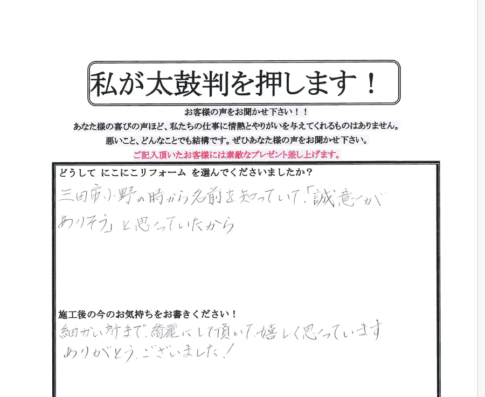 私が太鼓判を押します!
お客様の声をお聞かせ下さい!!
あなた様の喜びの声ほど、私たちの仕事に情熱とやりがいを与えてくれるものはありません。
悪いこと、どんなことでも結構です。ぜひあなた様の声をお聞かせ下さい。
ご記入頂いたお客様には素敵なプレゼント差し上げます。
どうして にこにこリフォーム を選んでくださいましたか?
三田市小野の時から名前を知っていて、「誠意が
ありそう」と思っていたから
施工後の今のお気持ちをお書きください!
細かい所まで、綺麗にして頂いて、嬉しく思っています
ありがとう、ございました!